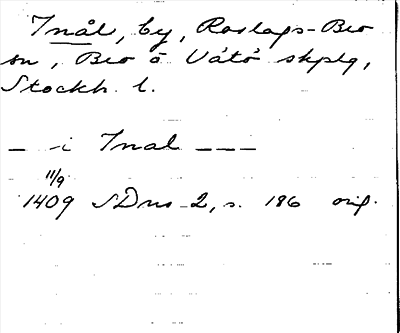 Inål, by, Roslags-Bro
sn, Bro o Vätö skplg,
Stockh. l.
— i Inal — — —
11/9
1409 SDns 2, s. 186 orig.